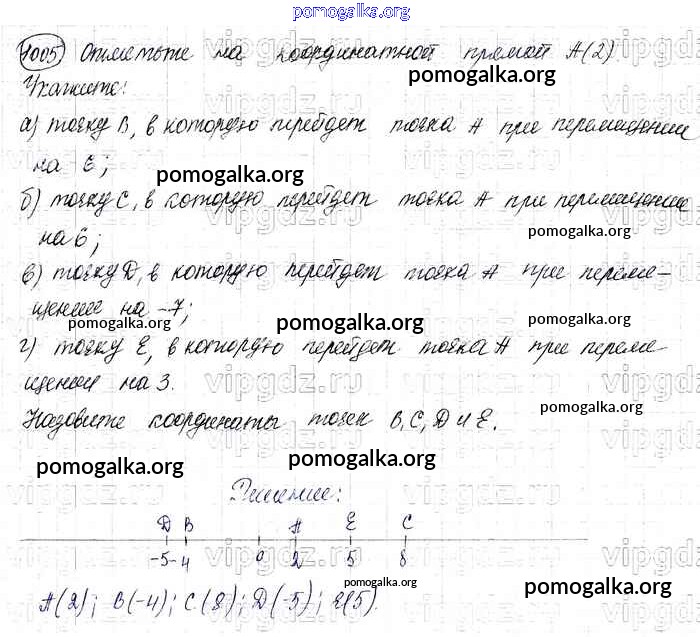 pomogalka.org
1005) Отметьте на координатной прямой A(2).
pomogalka.org
Укажите:
а) точку B, в которую перейдет точка A при перемещении
на -6;
pomogalka.org
б) точку C, в которую перейдет точка A при перемещении
на 6;
pomogalka.org
в) точку D, в которую перейдет точка A при переме-
щении на -7;
pomogalka.org pomogalka.org pomogalka.org
г) точку E, в которую перейдет точка A при переме-
щении на 3.
pomogalka.org
Назовите координаты точек B, C, D и E.
pomogalka.org pomogalka.org
Решение:
D B A E C
-5 -4 0 2 5 8
pomogalka.org pomogalka.org
A(2); B(-4); C(8); D(-5); E(5).